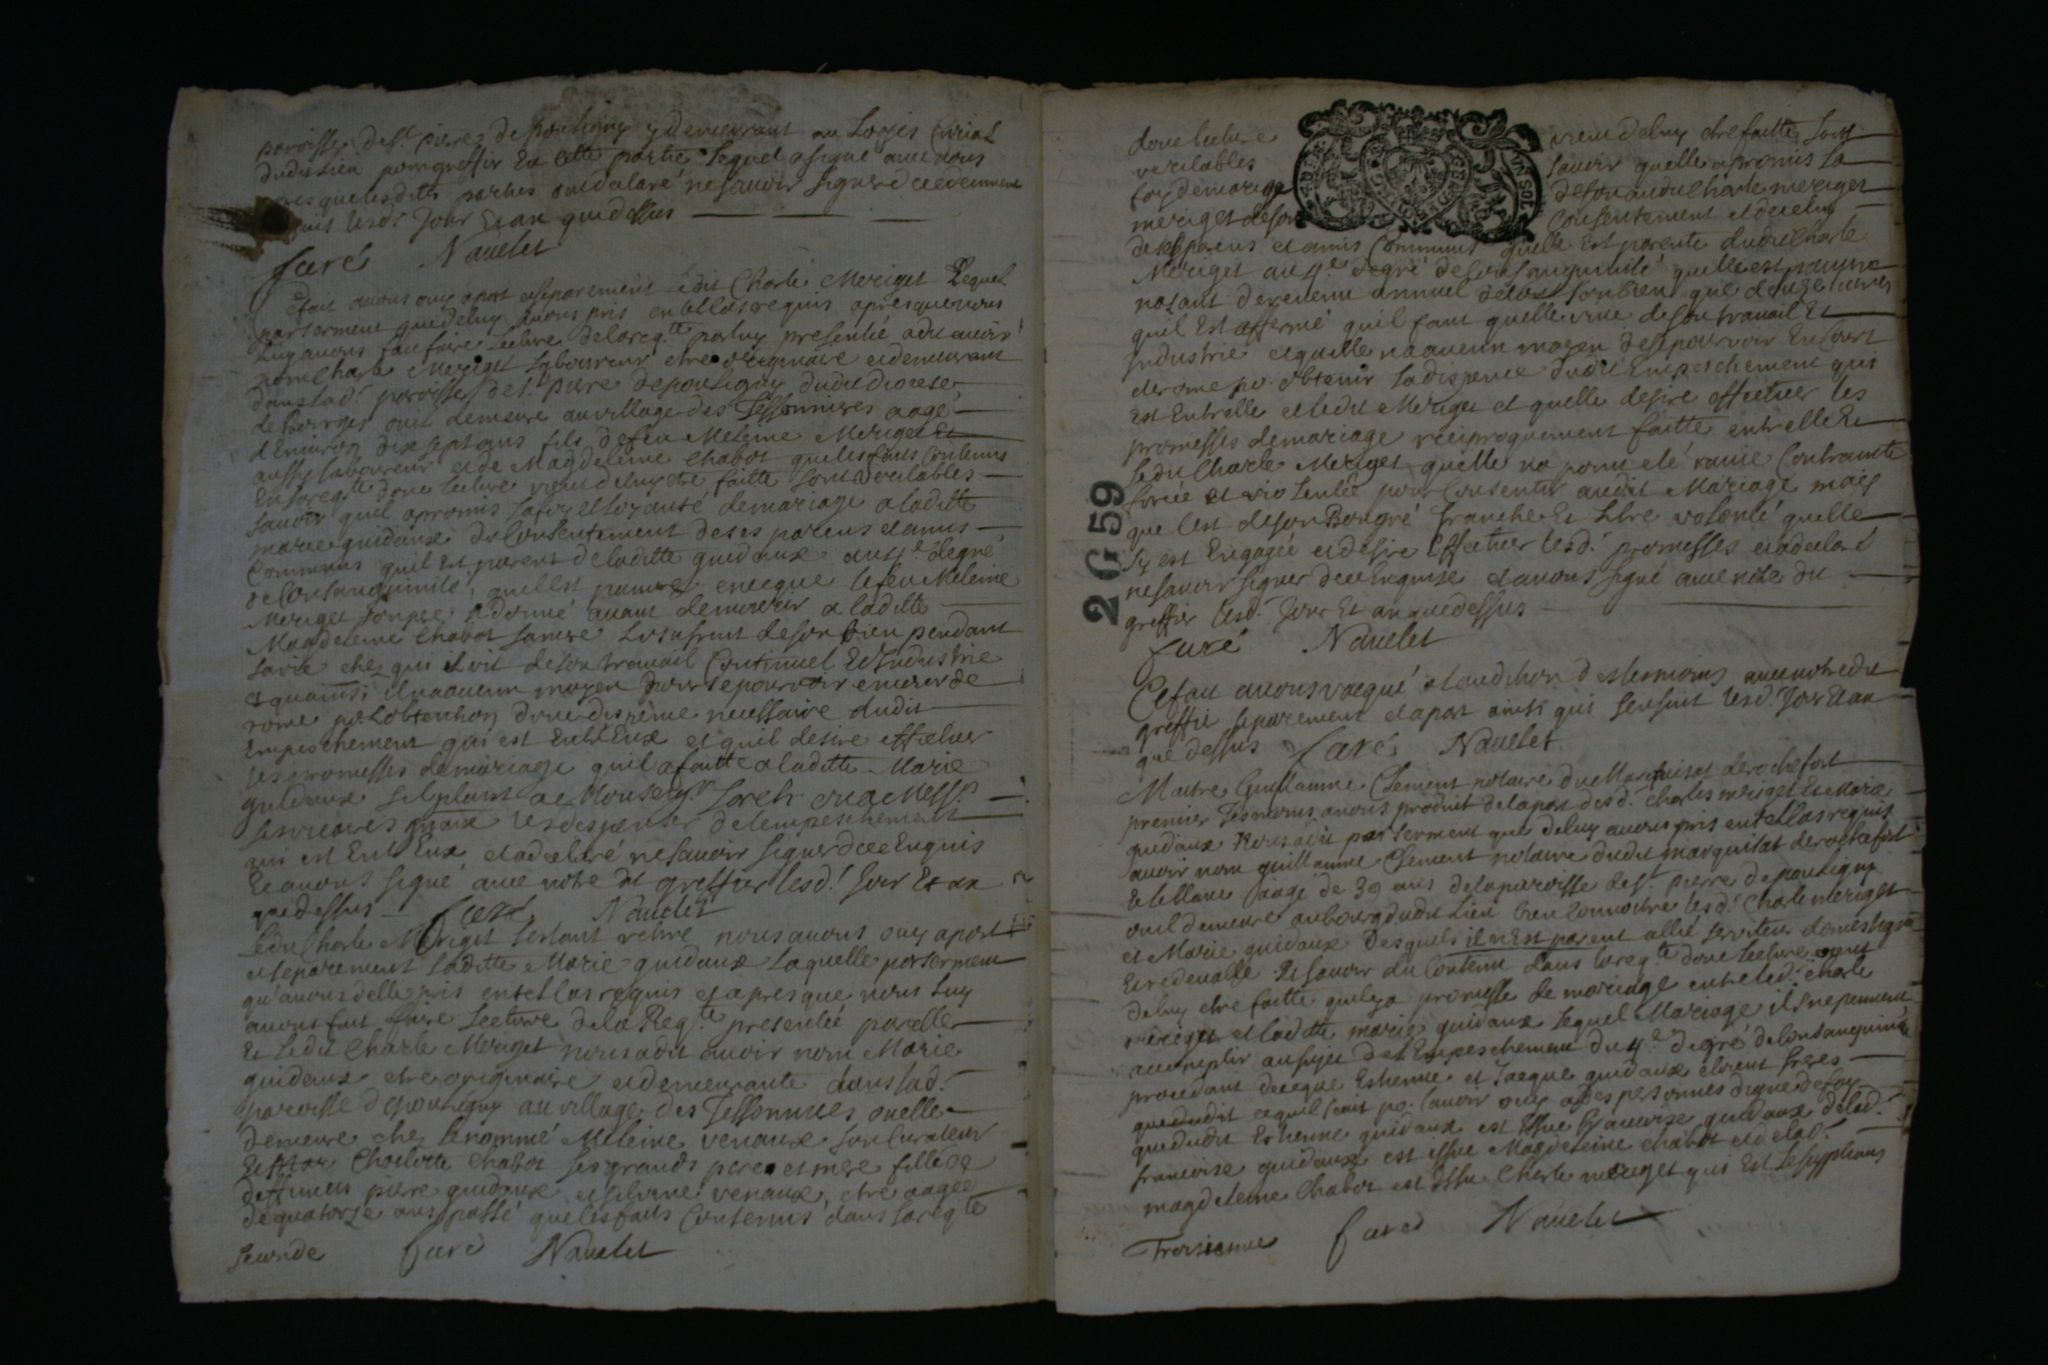 paroisse de St. Pierre de poulligny y demeurant au Logis Curial
dudit Lieu pour greffier En cette partie lequel a signé avec nous
ores que lesdittes parties ont declaré ne savoir signer de ce deuement
requis lesd. Jour Et an que dessus
faré Nauelet
Ce fait avons ouy apart et separement ledit Charle Meriget Lequel
par serment que de luy avons pris en tel cas requis apres que nous
Luy avons fait faire Lecture de la reqte. par luy presentée a dit avoir
nom Charle Meriget Laboureur etre originaire et demeurant
dans lad. paroisse de St. Pierre de poulligny dudit diocese
de bourges ou il demeure au village des Tessonnieres aagé
d'Environ dix sept ans fils de feu Meleine Meriget Et
aussy laboureur et de Magdeleine Chabot que les faits Contenus
En sa reqte. dont lecture vient de luy etre faitte sont veritables
savoir qu'il a promis sa foy et loyauté de mariage a laditte
marie guidaux du Consentement de ses parens et amis
Communs qu'il Est parent de laditte guidaux au 4e. degré
de Consanguinité, qu'il Est pauvre en ce que le feu Meleine
Meriget son pere a donné avant de mourir a laditte
Magdeleine Chabot sa mere L'usufruit de son bien pendant
sa vie chez qui il vit de son travail Continuel Et Industrie
Et qu'ainsi il n'a aucun moyen pour se pourvoir en cour de
rome po. L'obtention d'une dispense necessaire dudit
Empeschement qui est Entr'Eux et qu'il desire effectuer
les promesses de mariage qu'il a faitte a laditte Marie
guidaux s'il plaist a Monseigr. Larch. ou a Messrs.
ses vicaires gnaux les dispenser de l'empeschement
qui est Entr'Eux, et a declaré ne savoir signer de ce Enquis
Et avons signé avec notre dit greffier lesd. Jour Et an
que dessus faré Nauelet
Ledit Charle Meriget s'estant retiré nous avons ouy apart
et separement laditte Marie guidaux laquelle par serment
qu'avons d'elle pris en tel cas requis et apres que nous luy
avons fait faire Lecture de la Reqte. presentée par elle
Et Ledit Charle Meriget nous a dit avoir nom Marie
guidaux etre originaire et demeurante dans lad.
paroisse de poulligny au village des Tessonnieres ou elle
demeure chez le nommé Meleine venaux son Curateur
Et Charlotte Chabot ses grands pere et mere fille de
deffunts pierre guidaux et silvine venaux, etre aagée
de quatorze ans passé que les faits Contenus dans sa reqte
seconde faré Nauelet
dont lecture vient de luy etre faitte sont
veritables savoir quelle a promis sa
foy de mariage de son audit Charle meriget
meriget de son Consentement et de celuy
de ses parens et amis Communs quelle Est parente dudit Charle
Meriget au 4e. degré de Consanguinité quelle est pauvre
n'ayant de revenu annuel de tout son bien que douze livres
qu'il Est affermé qu'il faut quelle vive de son travail Et
Industrie et quelle n'a aucun moyen de se pourvoir En Court
de rome po. obtenir la dispense dudit Empeschement qui
Est Entr'elle et ledit Meriget et quelle desire effectuer les
promesses de mariage reciproquement faitte entr'elle Et
ledit Charle Meriget quelle na point eté ravie Contrainte
forcée et violentée pour Consentir audit Mariage mais
que C'est de son Bon gré franche Et libre volonté quelle
s'y est Engagée et desire Effectuer lesd. promesses et a declaré
ne savoir signer de ce Enquise et avons signé avec notre dit
greffier lesd. Jour Et an que dessus
faré Nauelet
Ce fait avons vacqué a l'audition des tesmoins avec notre dit
greffier separement et apart ainsi qu'il s'ensuit lesd. Jour Et an
que dessus faré Nauelet
Maitre Guillaume Clement notaire du Marquisat de rochefort
premier Tesmoins a nous produit de la part desd. Charles meriget Et Marie
guidaux Nous a dit par serment que de luy avons pris en tel cas requis
avoir nom guillaume Clement notaire dudit marquisat de rochefort
Et le Blanc aagé de 39 ans de la paroisse de St. pierre de poulligny
ou il demeure au bourg dudit Lieu bien Connoitre lesd. Charle meriget
et Marie guidaux desquels il n'Est parent allié serviteur domestique
Et redevable Et savoir du Contenu dans la reqte. dont lecture vient
de luy etre faitte qu'il y a promesse de mariage entre led. Charle
meriget et laditte marie guidaux lequel Mariage ils ne peuvent
accomplir au sujet de l'Empeschement du 4e. degré de Consanguinité
procedant de ce que Estienne et Jacque guidaux etoient freres
que dudit ce qu'il scait po. l'avoir ouy a des personnes digne de foy
que dudit Estienne guidaux est issue francoise guidaux de lad.
francoise guidaux est issue Magdeleine Chabot et de lad.
magdeleine Chabot est issu Charle meriget qui Est le suppliant
Troisieme faré Nauelet
2G59